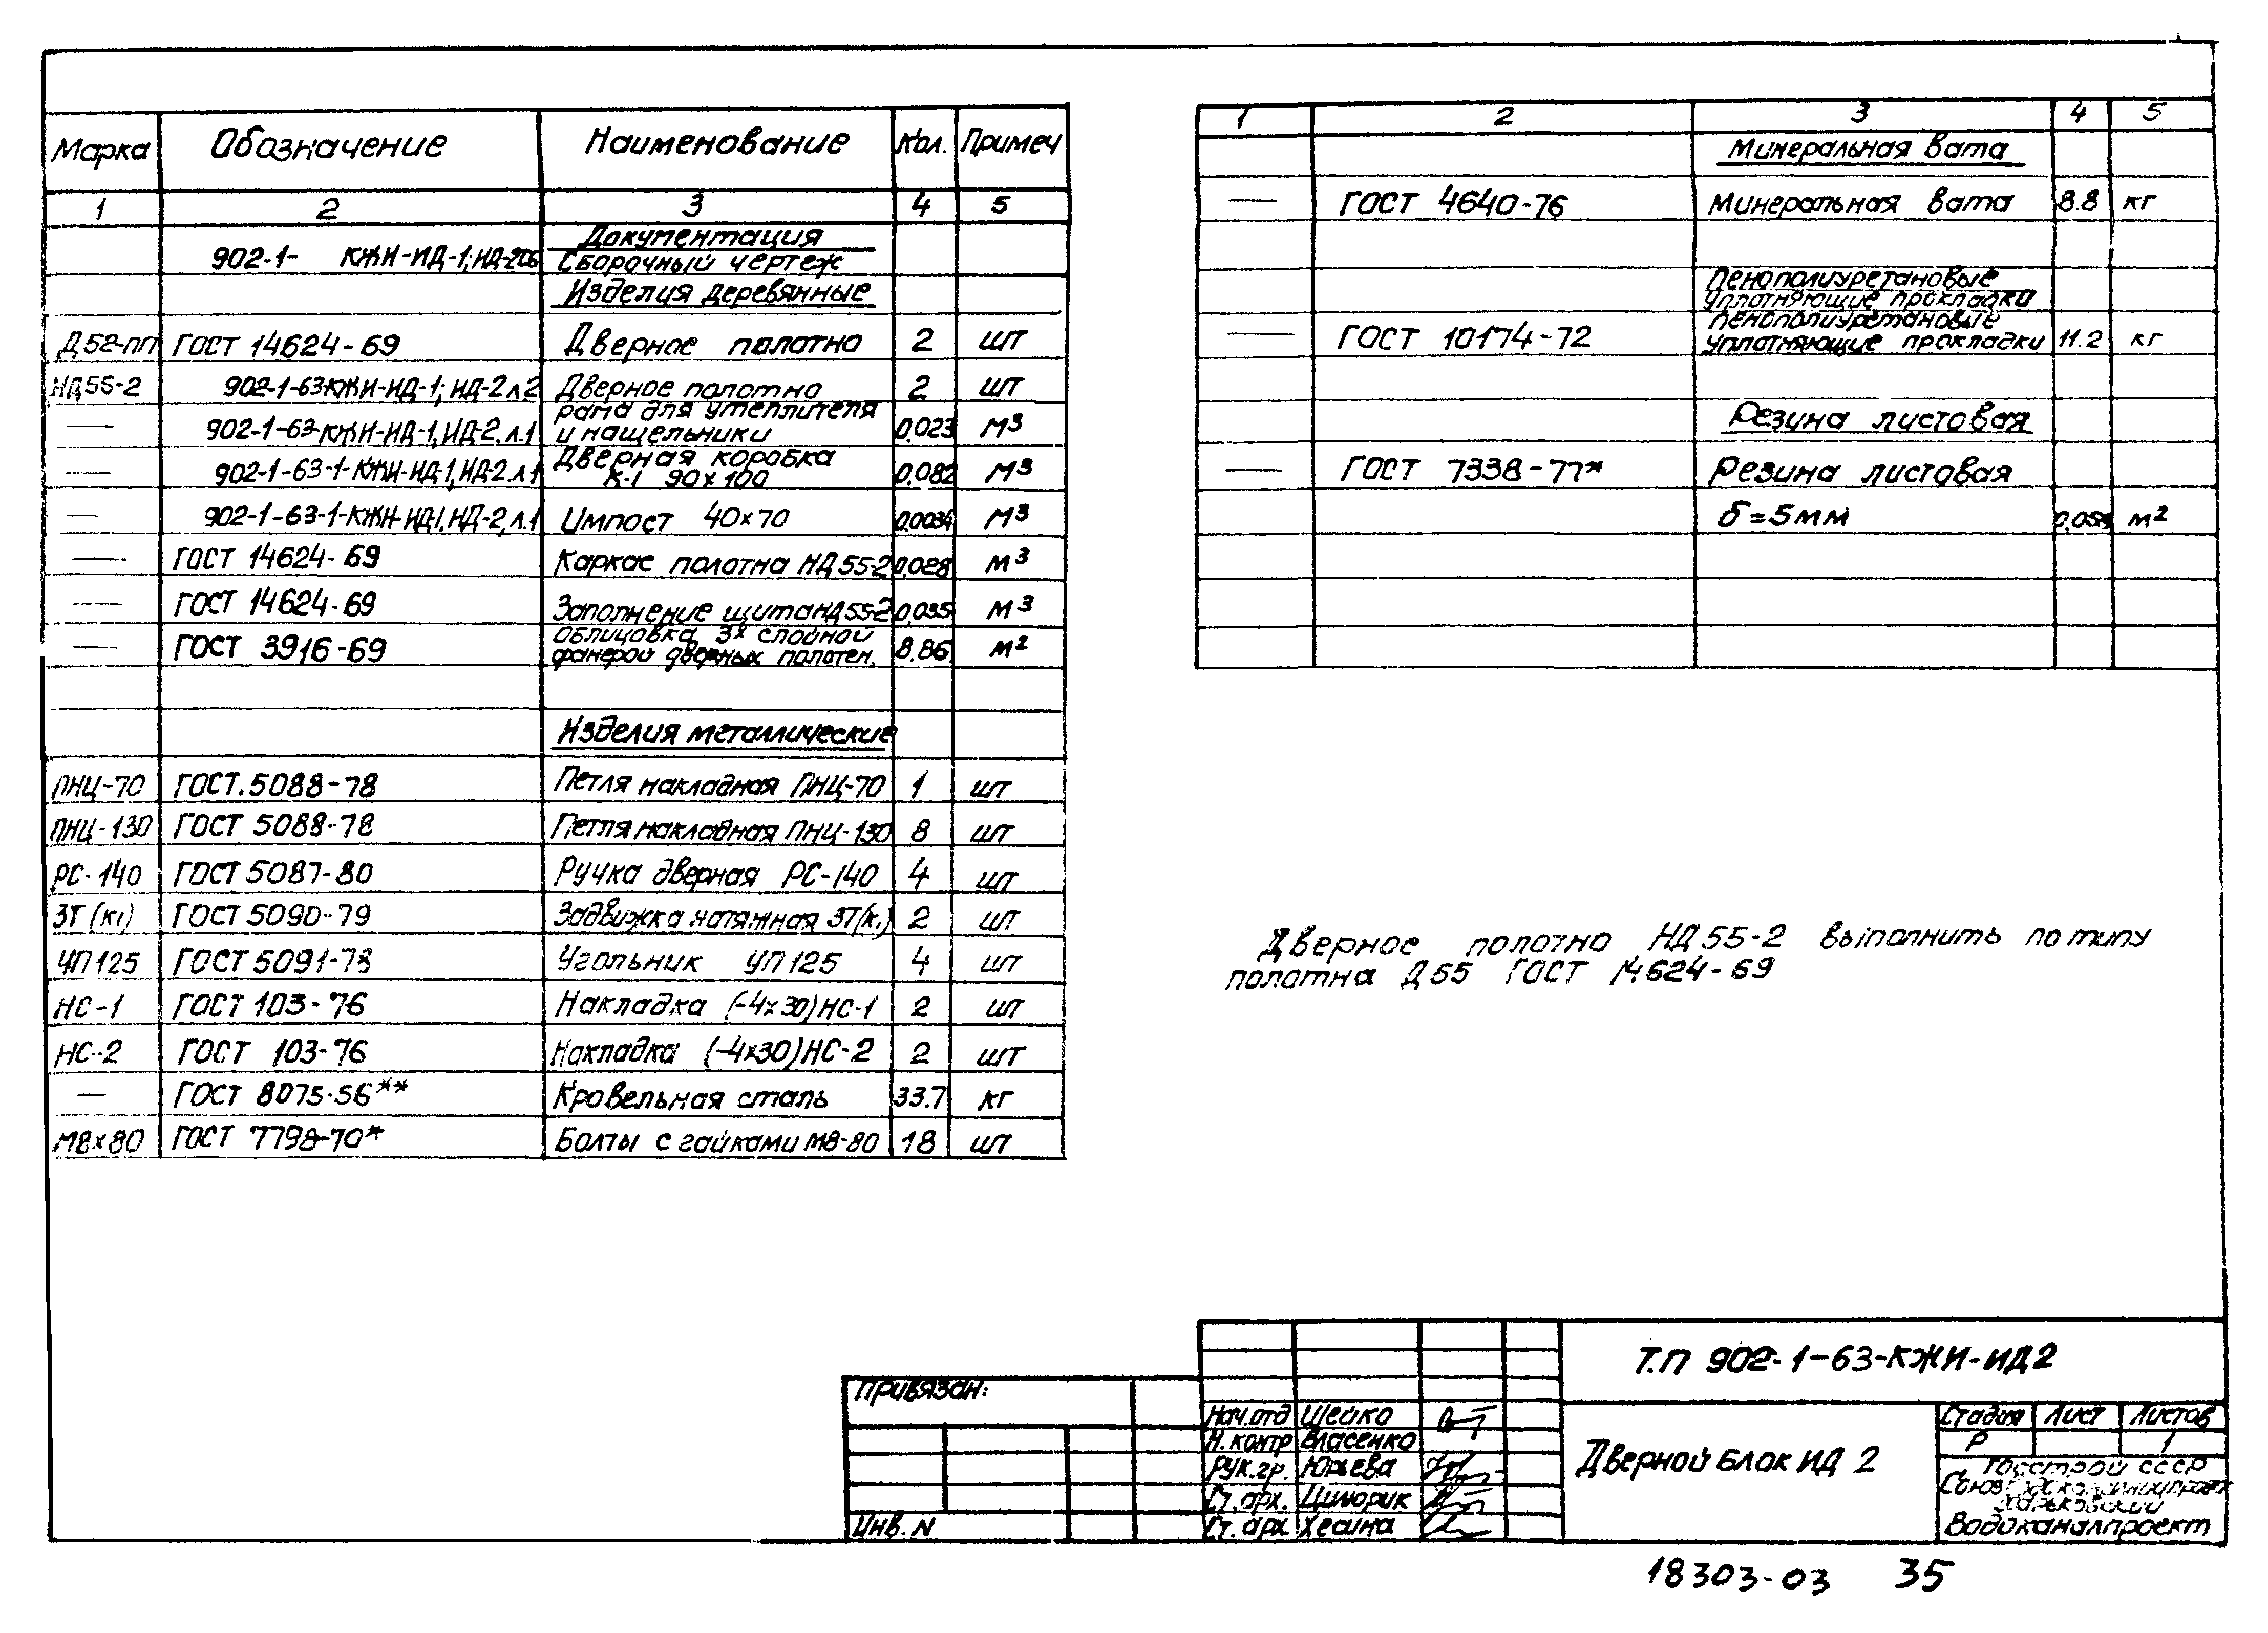 Марка Обозначение Наименование Кол. Примеч
1 2 3 4 5
Документация
902-1- КЖИ-ИД-1; ИД-2СБ Сборочный чертеж
Изделия деревянные
Д52-пп ГОСТ 14624-69 Дверное полотно 2 шт
НД55-2 902-1-63КЖИ-ИД-1; ИД-2 л.2 Дверное полотно 2 шт
рама для утеплителя
— 902-1-63-КЖИ-ИД-1, ИД-2. л.1 и нащельники 0.023 м3
Дверная коробка
— 902-1-63-1-КЖИ-ИД-1, ИД-2. л.1 К-1 90х100 0.082 м3
— 902-1-63-1-КЖИ-ИД1. ИД-2, л.1 Импост 40х70 0.0034 м3
— ГОСТ 14624-69 Каркас полотна НД55-2 0.028 м3
— ГОСТ 14624-69 Заполнение щита НД55-2 0.035 м3
Облицовка 3х слойной
— ГОСТ 3916-69 фанерой дверных полотен. 8.86 м2
Изделия металлические
ПНЦ-70 ГОСТ.5088-78 Петля накладная ПНЦ-70 1 шт
ПНЦ-130 ГОСТ 5088-78 Петля накладная ПНЦ-130 8 шт
РС-140 ГОСТ 5087-80 Ручка дверная РС-140 4 шт
ЗТ(к1) ГОСТ 5090-79 Задвижка натяжная ЗТ(к1) 2 шт
УП125 ГОСТ 5091-78 Угольник УП125 4 шт
НС-1 ГОСТ 103-76 Накладка (-4х30)НС-1 2 шт
НС-2 ГОСТ 103-76 Накладка (-4х30)НС-2 2 шт
— ГОСТ 8075-56** Кровельная сталь 33.7 кг
М8х80 ГОСТ 7798-70* Болты с гайками М8-80 18 шт
1 2 3 4 5
Минеральная вата
— ГОСТ 4640-76 Минеральная вата 8.8 кг
Пенополиуретановые
уплотняющие прокладки
Пенополиуретановые
— ГОСТ 10174-72 уплотняющие прокладки 11.2 кг
Резина листовая
— ГОСТ 7338-77* Резина листовая
δ=5мм м2
Дверное полотно НД55-2 выполнить по типу
полотна Д55 ГОСТ 14624-69
Т.П 902-1-63-КЖИ-ИД2
Привязан:
Инв. N
Нач.отд Шейко
Н.контр Власенко
Рук.гр. Юрьева
Ст.арх. Циморик
Ст.арх. Хесина
Дверной блок ИД 2
Стадия Лист Листов
Р 1
Госстрой СССР
Союзводоканалниипроект
Харьковский
Водоканалпроект
18303-03 35